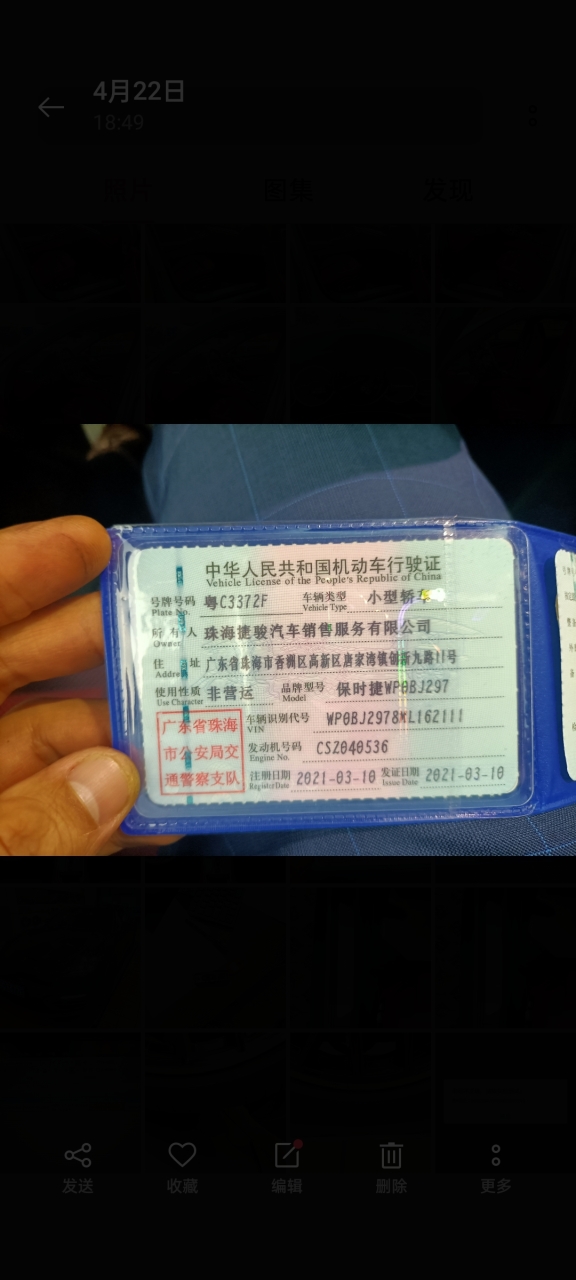 4月22日
18:49
照片 图集 发现
中华人民共和国机动车行驶证
Vehicle License of the People's Republic of China
号牌号码 粤C3372F 车辆类型 小型轿车
Plate No. Vehicle Type
所有人 珠海捷骏汽车销售服务有限公司
Owner
住址 广东省珠海市香洲区高新区唐家湾镇创新九路11号
Address
使用性质 非营运 品牌型号 保时捷WP0BJ297
Use Character Model
广东省珠海 车辆识别代号 WP0BJ2978KL162111
VIN
市公安局交 发动机号码 CSZ040536
Engine No.
通警察支队 注册日期 2021-03-10 发证日期 2021-03-10
Register Date Issue Date
发送 收藏 编辑 删除 更多